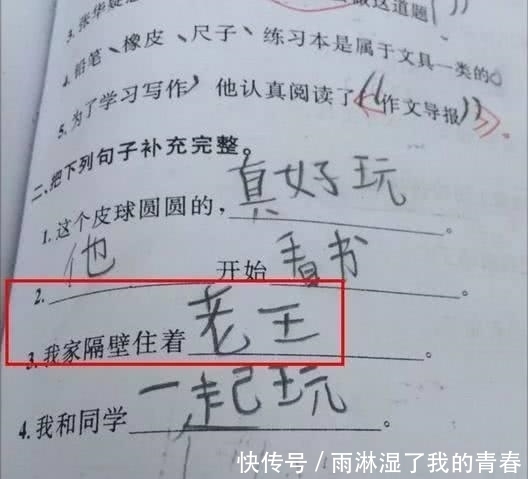 3.张华疑惑
做这道题
4.铅笔、橡皮、尺子、练习本是属于文具一类的。
5.为了学习写作》他认真阅读了《《作文导报》》。
二、把下列句子补充完整。
1.这个皮球圆圆的，真好玩。
2.他开始看书。
3.我家隔壁住着老王。
4.我和同学一起玩。
快传号/雨淋湿了我的青春